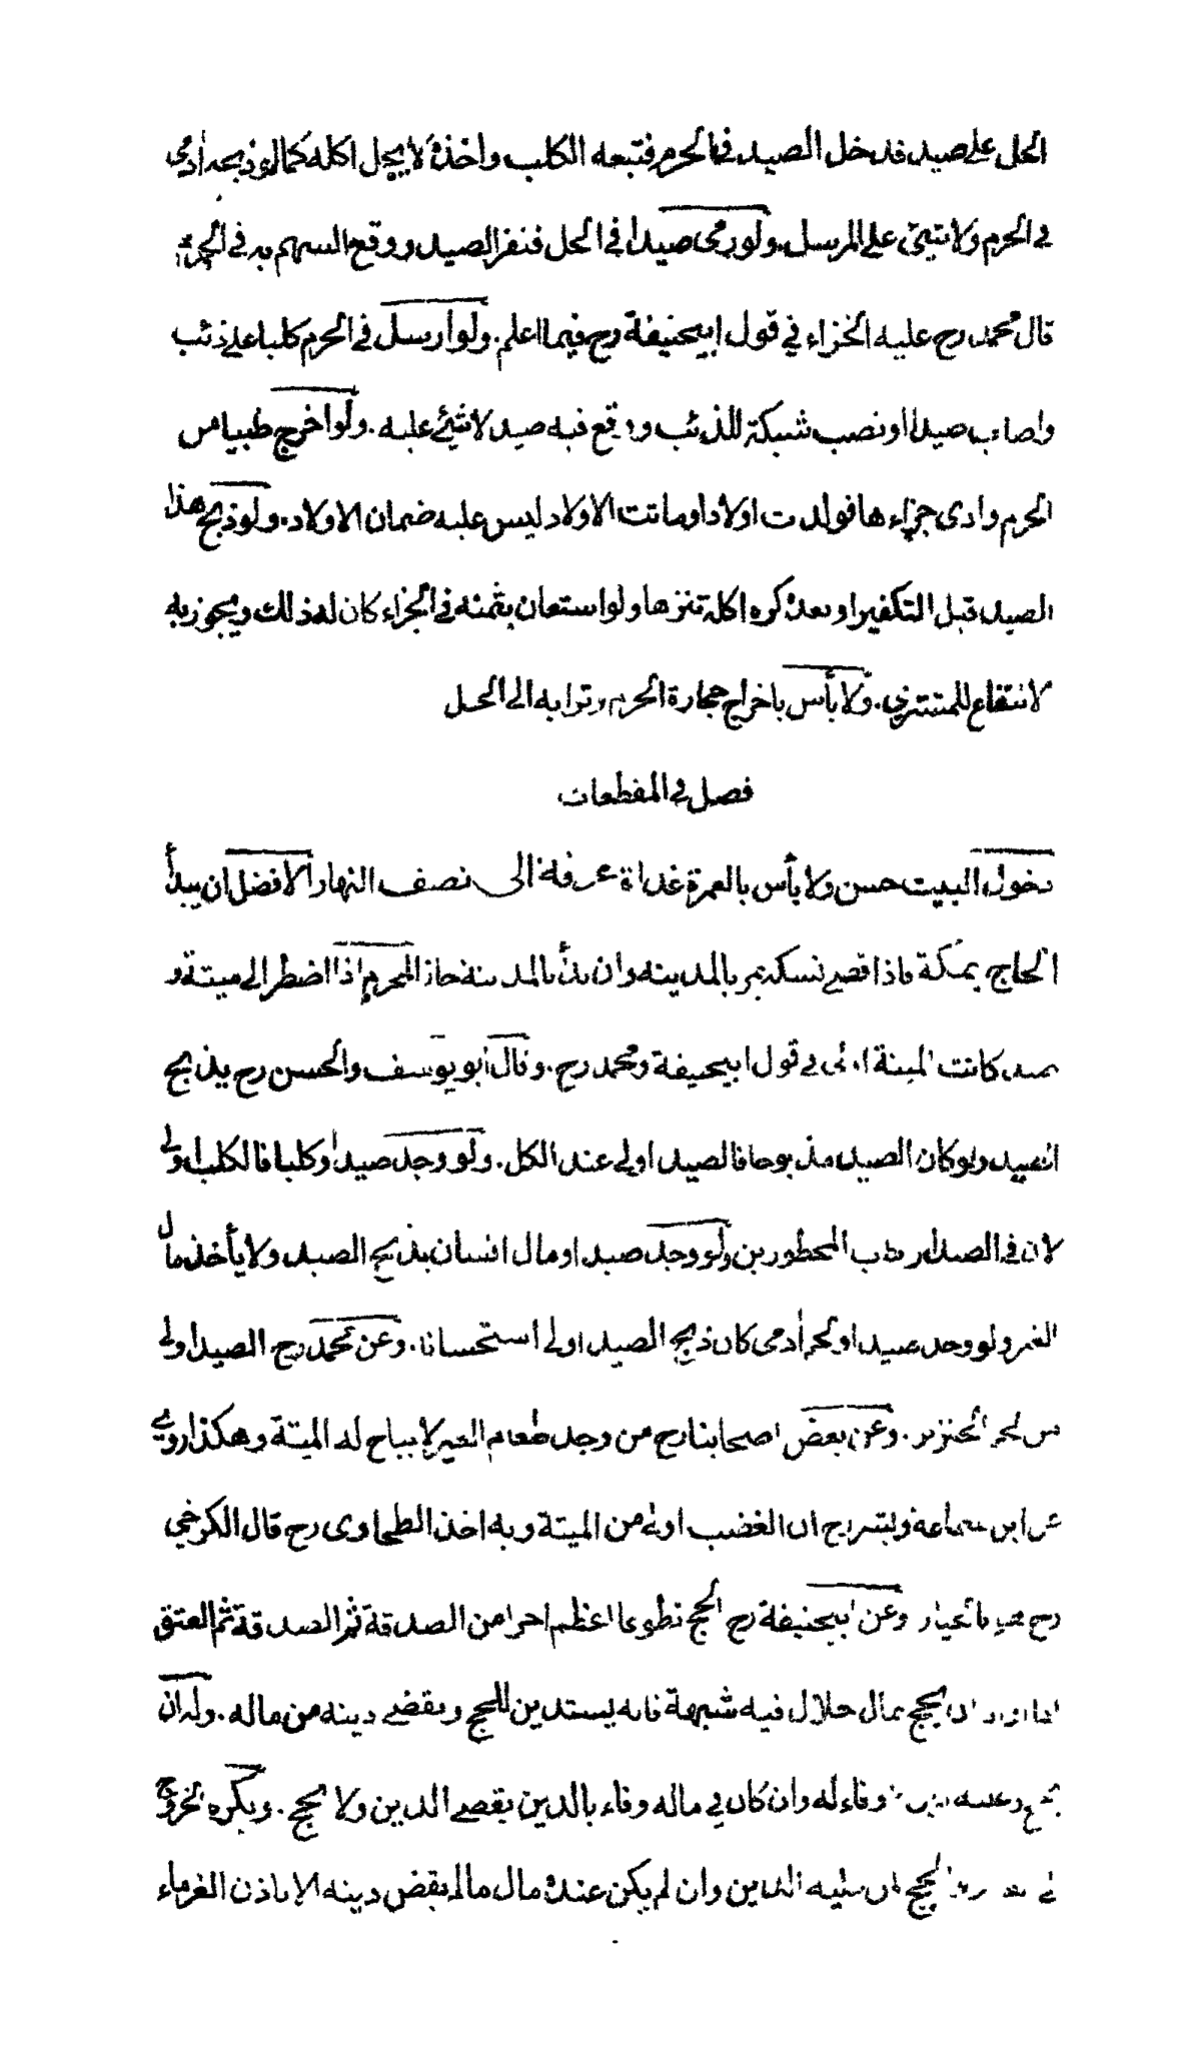 الحل على صيد فدخل الصيد في الحرم فتبعه الكلب واخذه لا يحل اكله كما لو ذبحه ادمى
في الحرم ولا شئ على المرسل ولو رمى صيدا في الحل فنفر الصيد ووقع السهم به في الحرم
قال محمد رح عليه الجزاء في قول ابيحنيفة رح فيما اعلم. ولو ارسل في الحرم كلبا على ذئب
واصاب صيدا او نصب شبكة للذئب ووقع فيه صيد لا شئ عليه. ولو اخرج ظبيا من
الحرم وادى جزاءها فولدت اولادا وماتت الاولاد ليس عليه ضمان الاولاد. ولو ذبح هذا
الصيد قبل التكفير او بعده كره اكله تنزها ولو استعان بثمنه في الجزاء كان له ذلك ويجوز به
لانتفاع للمشترى. ولا بأس باخراج حجارة الحرم وترابه الى الحل
فصل في المقطعات
دخول البيت حسن ولا بأس بالعمرة غداة عرفة الى نصف النهار الافضل ان يبدأ
الحاج بمكة فاذا قضى نسكه يمر بالمدينه وان بدأ بالمدينة جاز المحرم اذا اضطر الى ميتة و
صيد كانت الميتة اولى في قول ابيحنيفة ومحمد رح. وقال ابو يوسف والحسن رح يذبح
الصيد ولو كان الصيد مذبوحا فالصيد اولى عند الكل. ولو وجد صيدا وكلبا فالكلب اولى
لان في الصيد ارتكاب المحظورين ولو وجد صيدا ومال انسان يذبح الصيد ولا يأخذ مال
الغير ولو وجد صيدا ولحم ادمى كان ذبح الصيد اولى استحسانا. وعن محمد رح الصيد اولى
من لحم الخنزير. وعن بعض اصحابنا رح من وجد طعام الغير لا يباح له الميتة وهكذا روي
عن ابن سماعة وبشر رح ان الغضب اولى من الميتة وبه اخذ الطحاوى رح قال الكرخي
رح هو بالخيار وعن ابيحنيفة رح الحج تطوعا اعظم اجرا من الصدقة ثم الصدقة ثم العتق
اذا اراد ان يحج بمال حلال فيه شبهة فانه يستدين للحج ويقضى دينه من ماله. ولو ان
وفاء له وان كان في ماله وفاء بالدين يقضى الدين ولا يحج. ويكره الخروج
الحج عليه الدين وان لم يكن عنده مال مالم يقض دينه الا باذن الغرماء